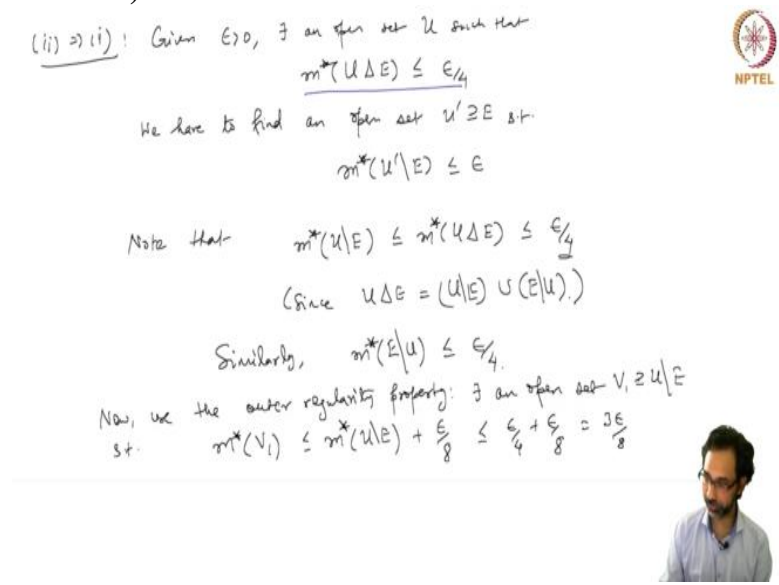 (ii) ⇒ (i) : Given ε>0, ∃ an open set U such that
m*(U Δ E) ≤ ε/4
NPTEL
We have to find an open set U' ⊇ E s.t.
m*(U'\E) ≤ ε
Note that m*(U\E) ≤ m*(U Δ E) ≤ ε/4
(Since U Δ E = (U\E) ∪ (E\U).)
Similarly, m*(E\U) ≤ ε/4.
Now, use the outer regularity property: ∃ an open set V₁ ⊇ U\E
st. m*(V₁) ≤ m*(U\E) + ε/8 ≤ ε/4 + ε/8 = 3ε/8